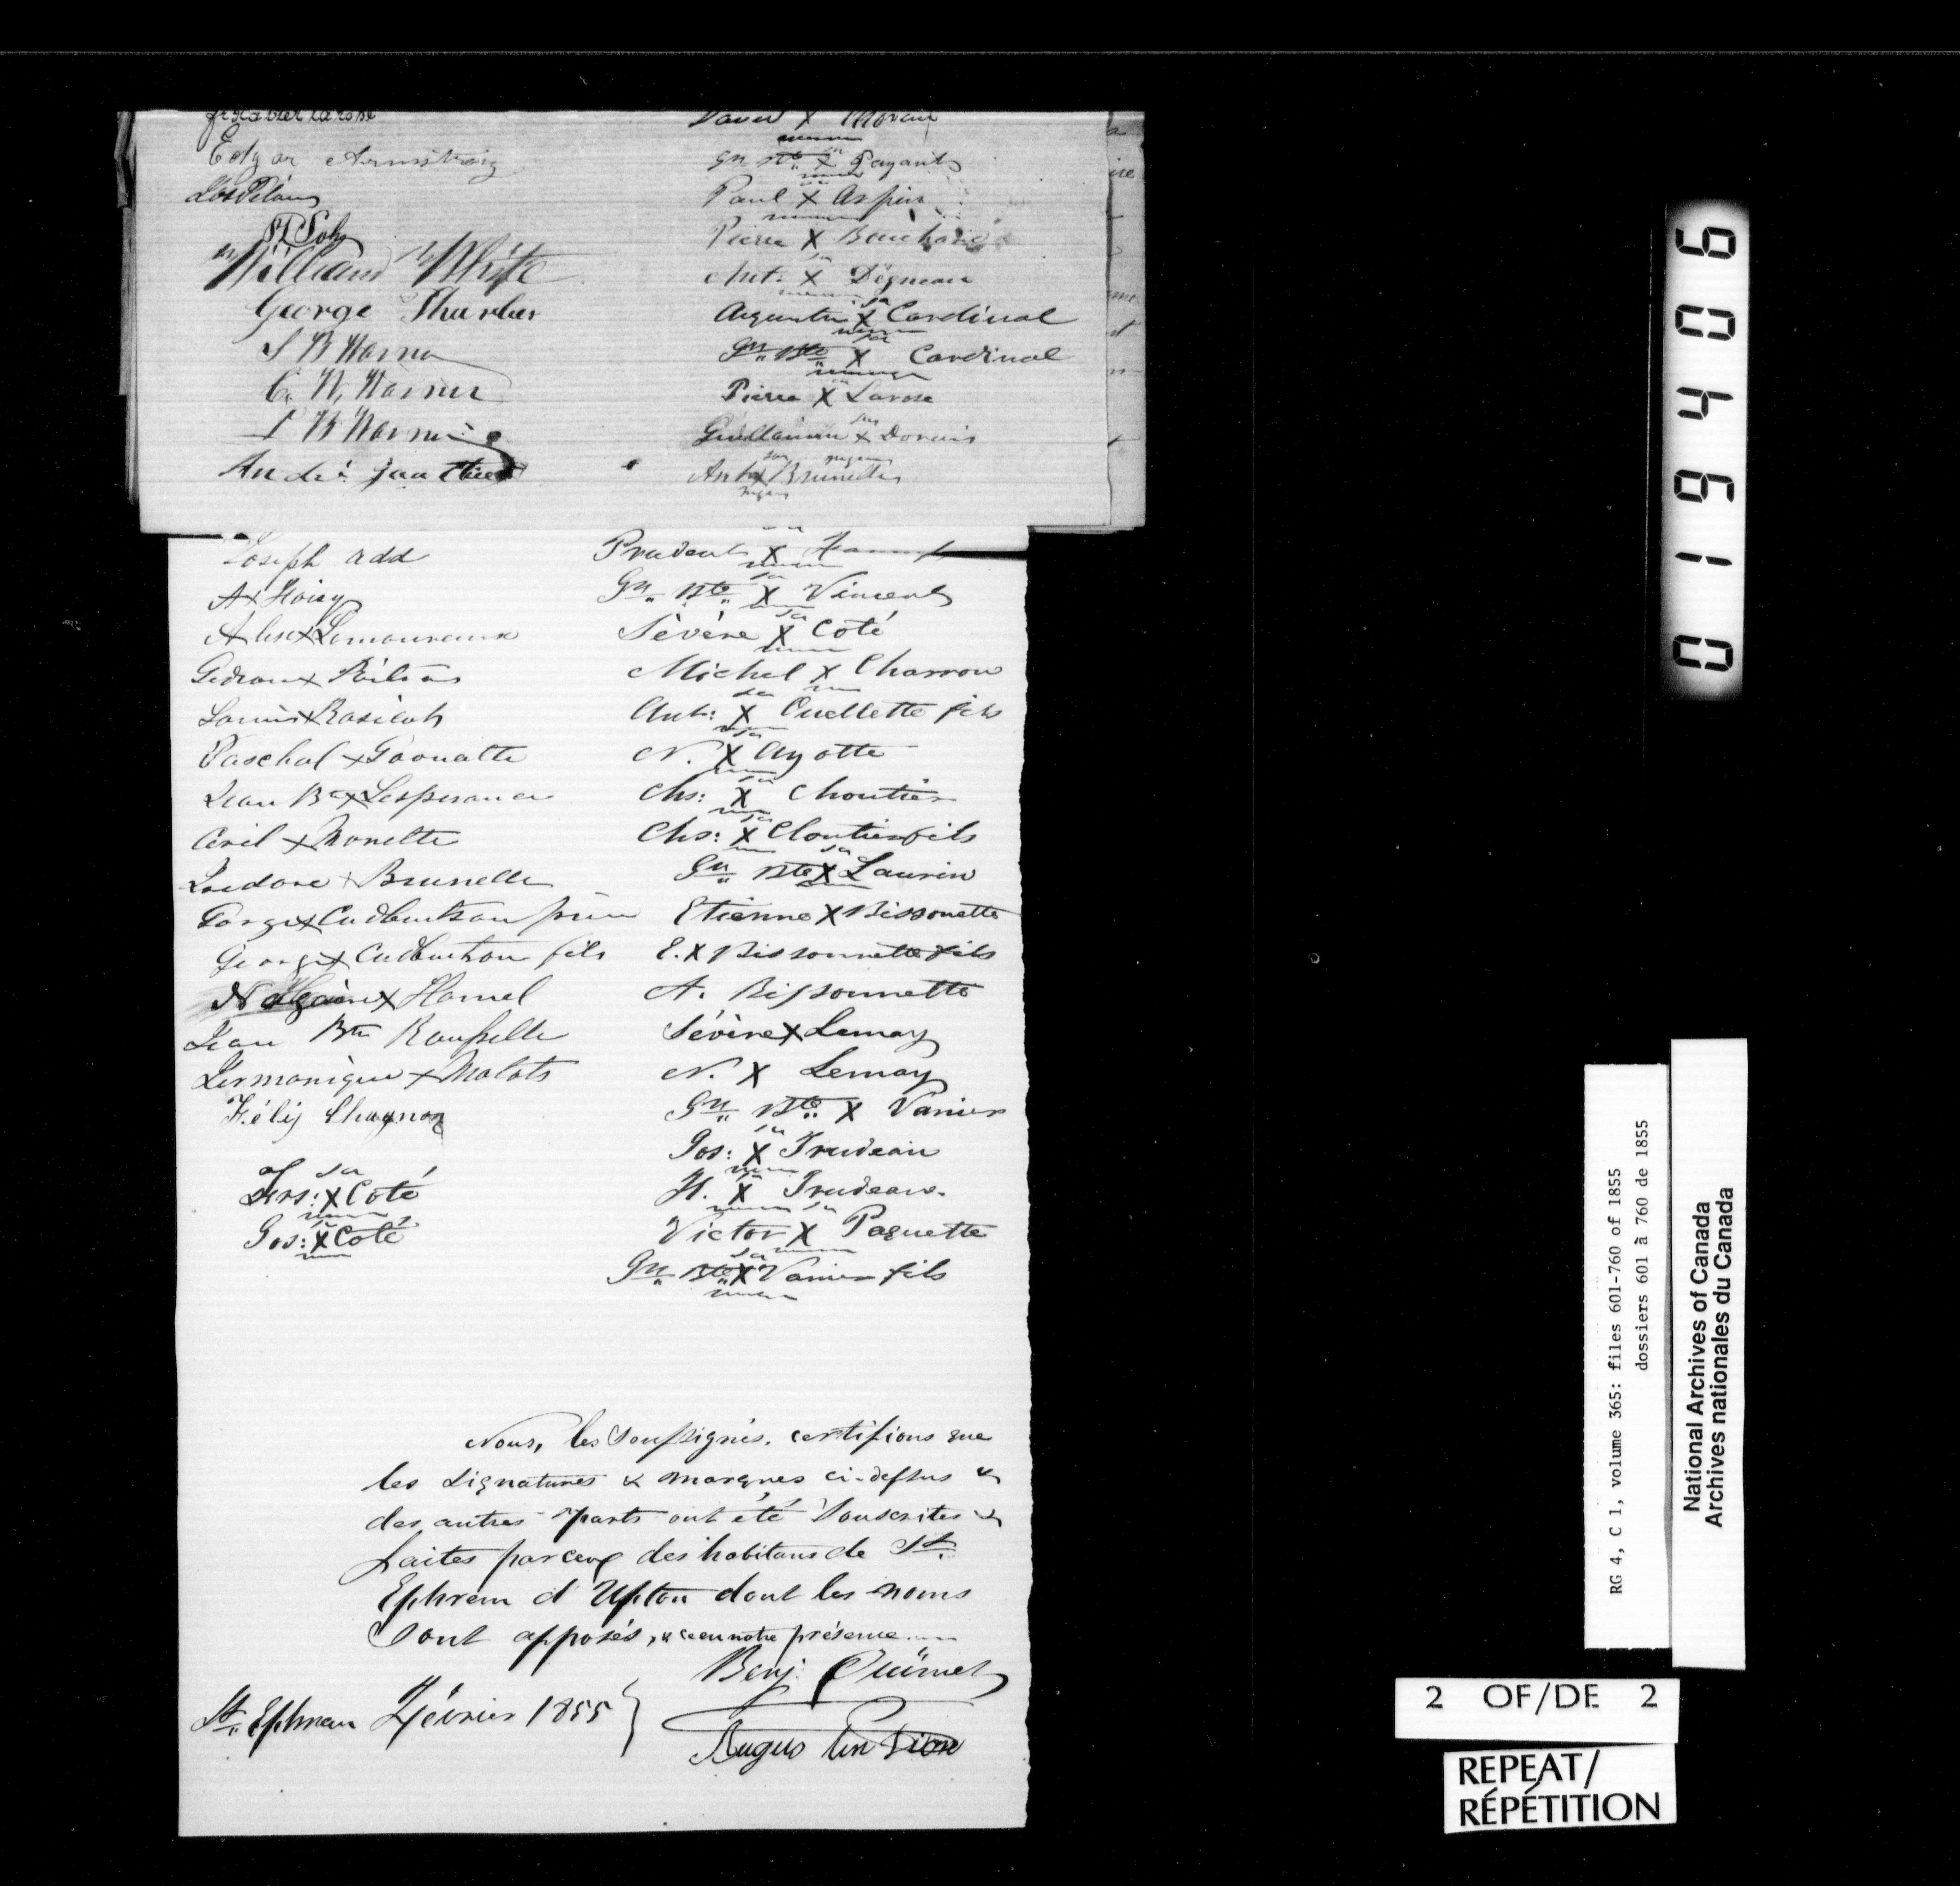 Edgar Armstrong
William White
George Thurber
S B Warner
C. W. Warner
André Gauthier
David X Moreau
Jn Bte X Payant
sa
Paul X Arpin
Pierre X
sa
Ant: X
Augustin X Cardinal
sa
Jn Bte X Cardinal
Pierre X Larose
Guillaume X Dorais
Ant X Brunelle
Joseph add
Alex X Lamoureux
Paschal X
Jean Bte X Lesperance
Ceril X Monette
Isedore X Brunelle
George X Cudbertson père
George X Cudbertson fils
X Hamel
Jean Bte Rousselle
Hermanigue X
Félix Chagnon
sa
Frs: X Coté
sa
Jos: X Coté
Prudent X
sa
Jn Bte X Vincent
sa
Sévère X Coté
Michel X Charron
sa
Ant: X Ouellette fils
sa
N. X Ayotte
sa
Chs: X Cloutier
sa
Chs: X Cloutier fils
sa
Jn Bte X Laurin
Etienne X Bissonette
E. X Bissonnette fils
A. Bissonnette
Sévère X Lemay
N. X Lemay
Jn Bte X Vanier
sa
Jos: X Trudeau
sa
H. X Trudeau
sa
Victor X Paquette
sa
Jn Bte X Vanier fils
Nous, les Soussignés, certifions que
les signatures & marques ci-dessus &
des autres parts ont été souscrites &
faites par ceux des habitans de St
Ephrem d'Upton dont les noms
sont apposés, & ce en notre présence
Benj. Ouimet
St. Ephrem février 1855
Augustin Dion
019406
RG 4, C 1, volume 365: files 601-760 of 1855
dossiers 601 à 760 de 1855
National Archives of Canada
Archives nationales du Canada
2 OF/DE 2
REPEAT/
RÉPÉTITION